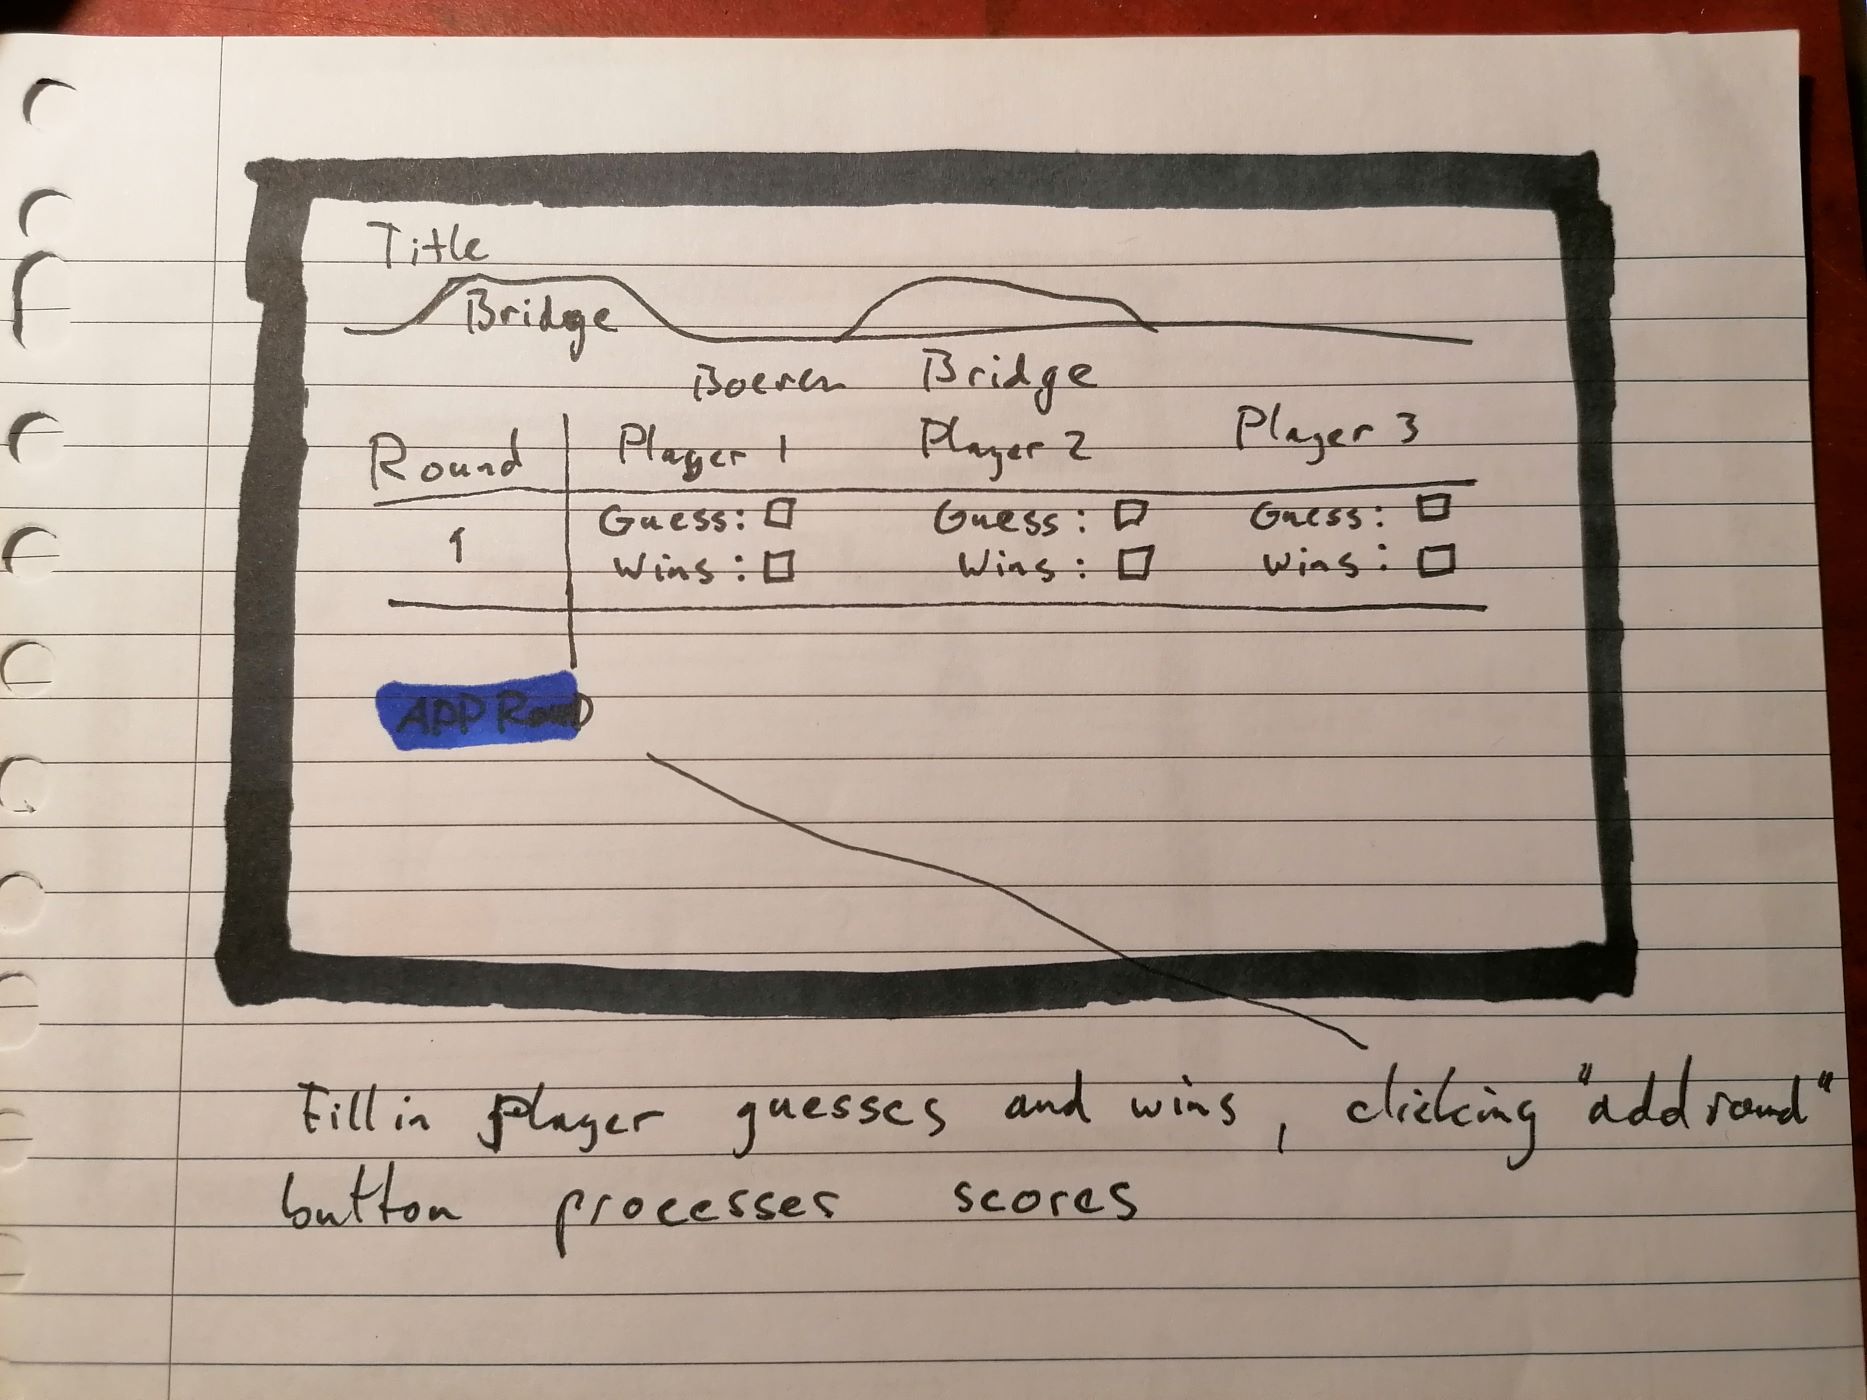 Title
Bridge
Boeren Bridge
Round Player 1 Player 2 Player 3
1 Guess: Guess: Guess:
Wins: Wins: Wins:
ADD ROUND
Fill in player guesses and wins, clicking "add round"
button processes scores